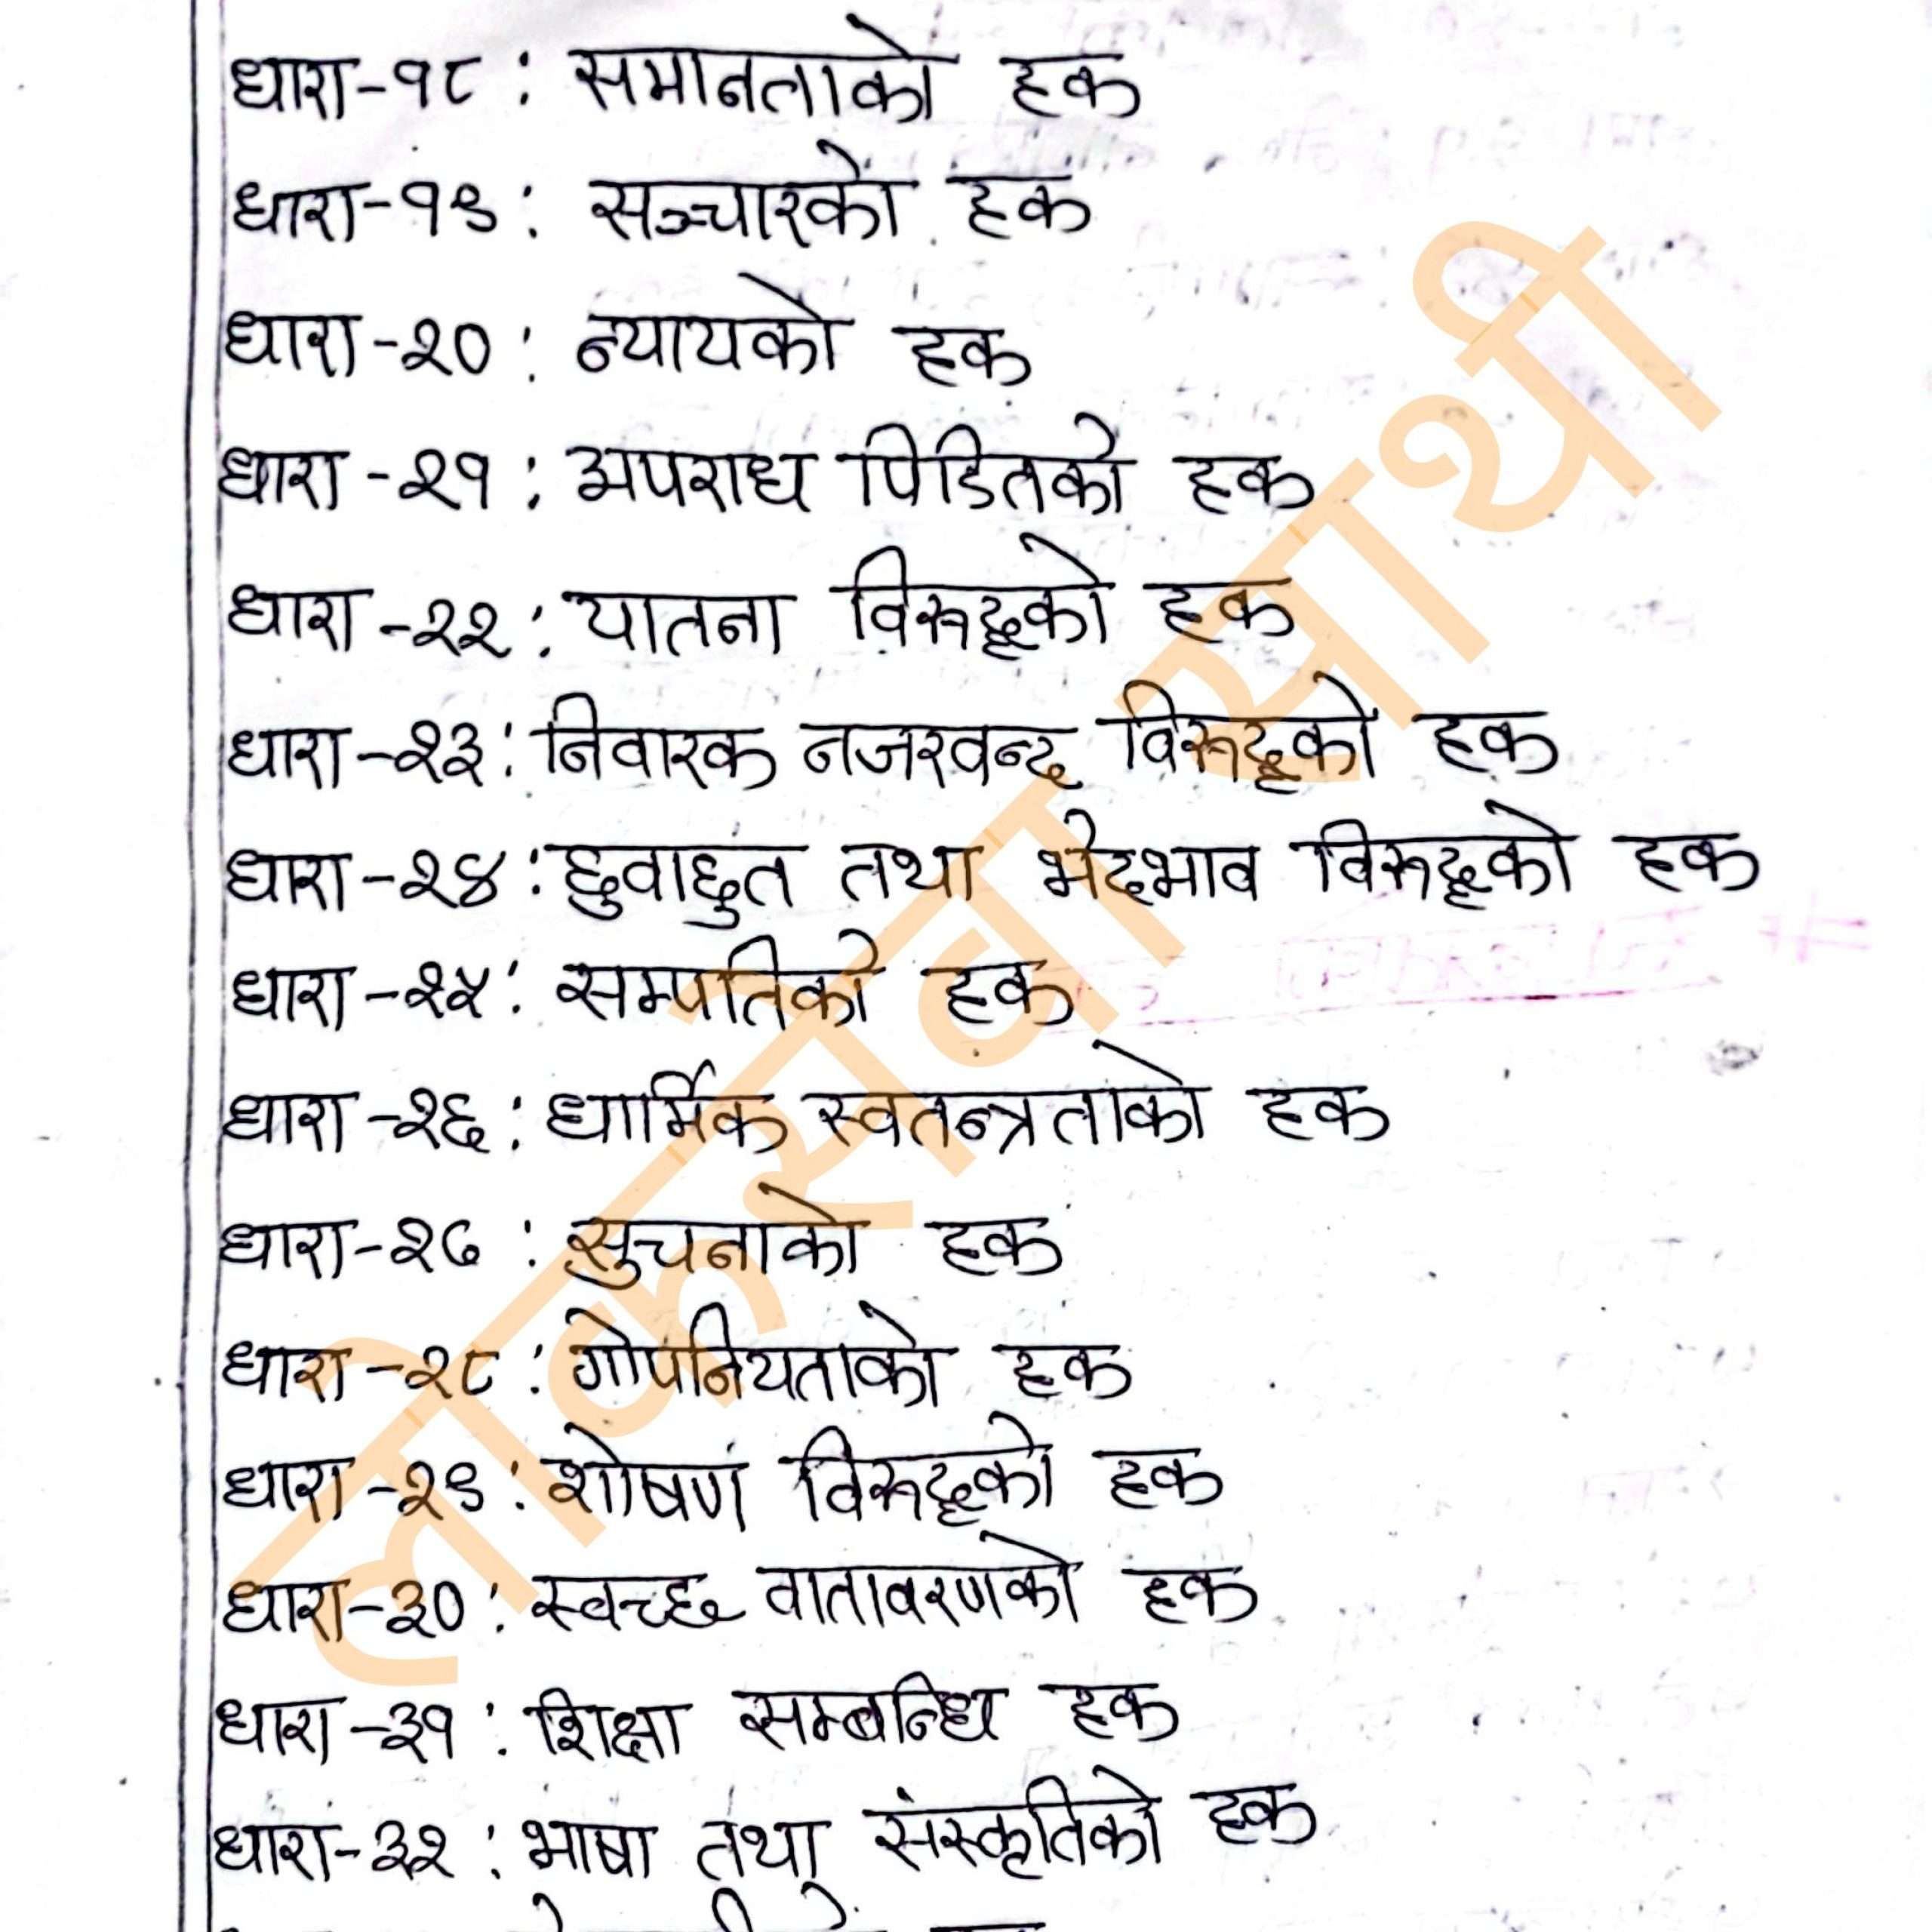 धारा-१८ : समानताको हक
धारा-१९ : सञ्चारको हक
धारा-२० : न्यायको हक
धारा-२१ : अपराध पिडितको हक
धारा-२२ : यातना विरूद्धको हक
धारा-२३ : निवारक नजरवन्द विरूद्धको हक
धारा-२४ : छुवाछुत तथा भेदभाव विरूद्धको हक
धारा-२५ : सम्पतिको हक
धारा-२६ : धार्मिक स्वतन्त्रताको हक
धारा-२७ : सुचनाको हक
धारा-२८ : गोपनियताको हक
धारा-२९ : शोषण विरूद्धको हक
धारा-३० : स्वच्छ वातावरणको हक
धारा-३१ : शिक्षा सम्बन्धि हक
धारा-३२ : भाषा तथा संस्कृतिको हक
लोकसेवा साथी